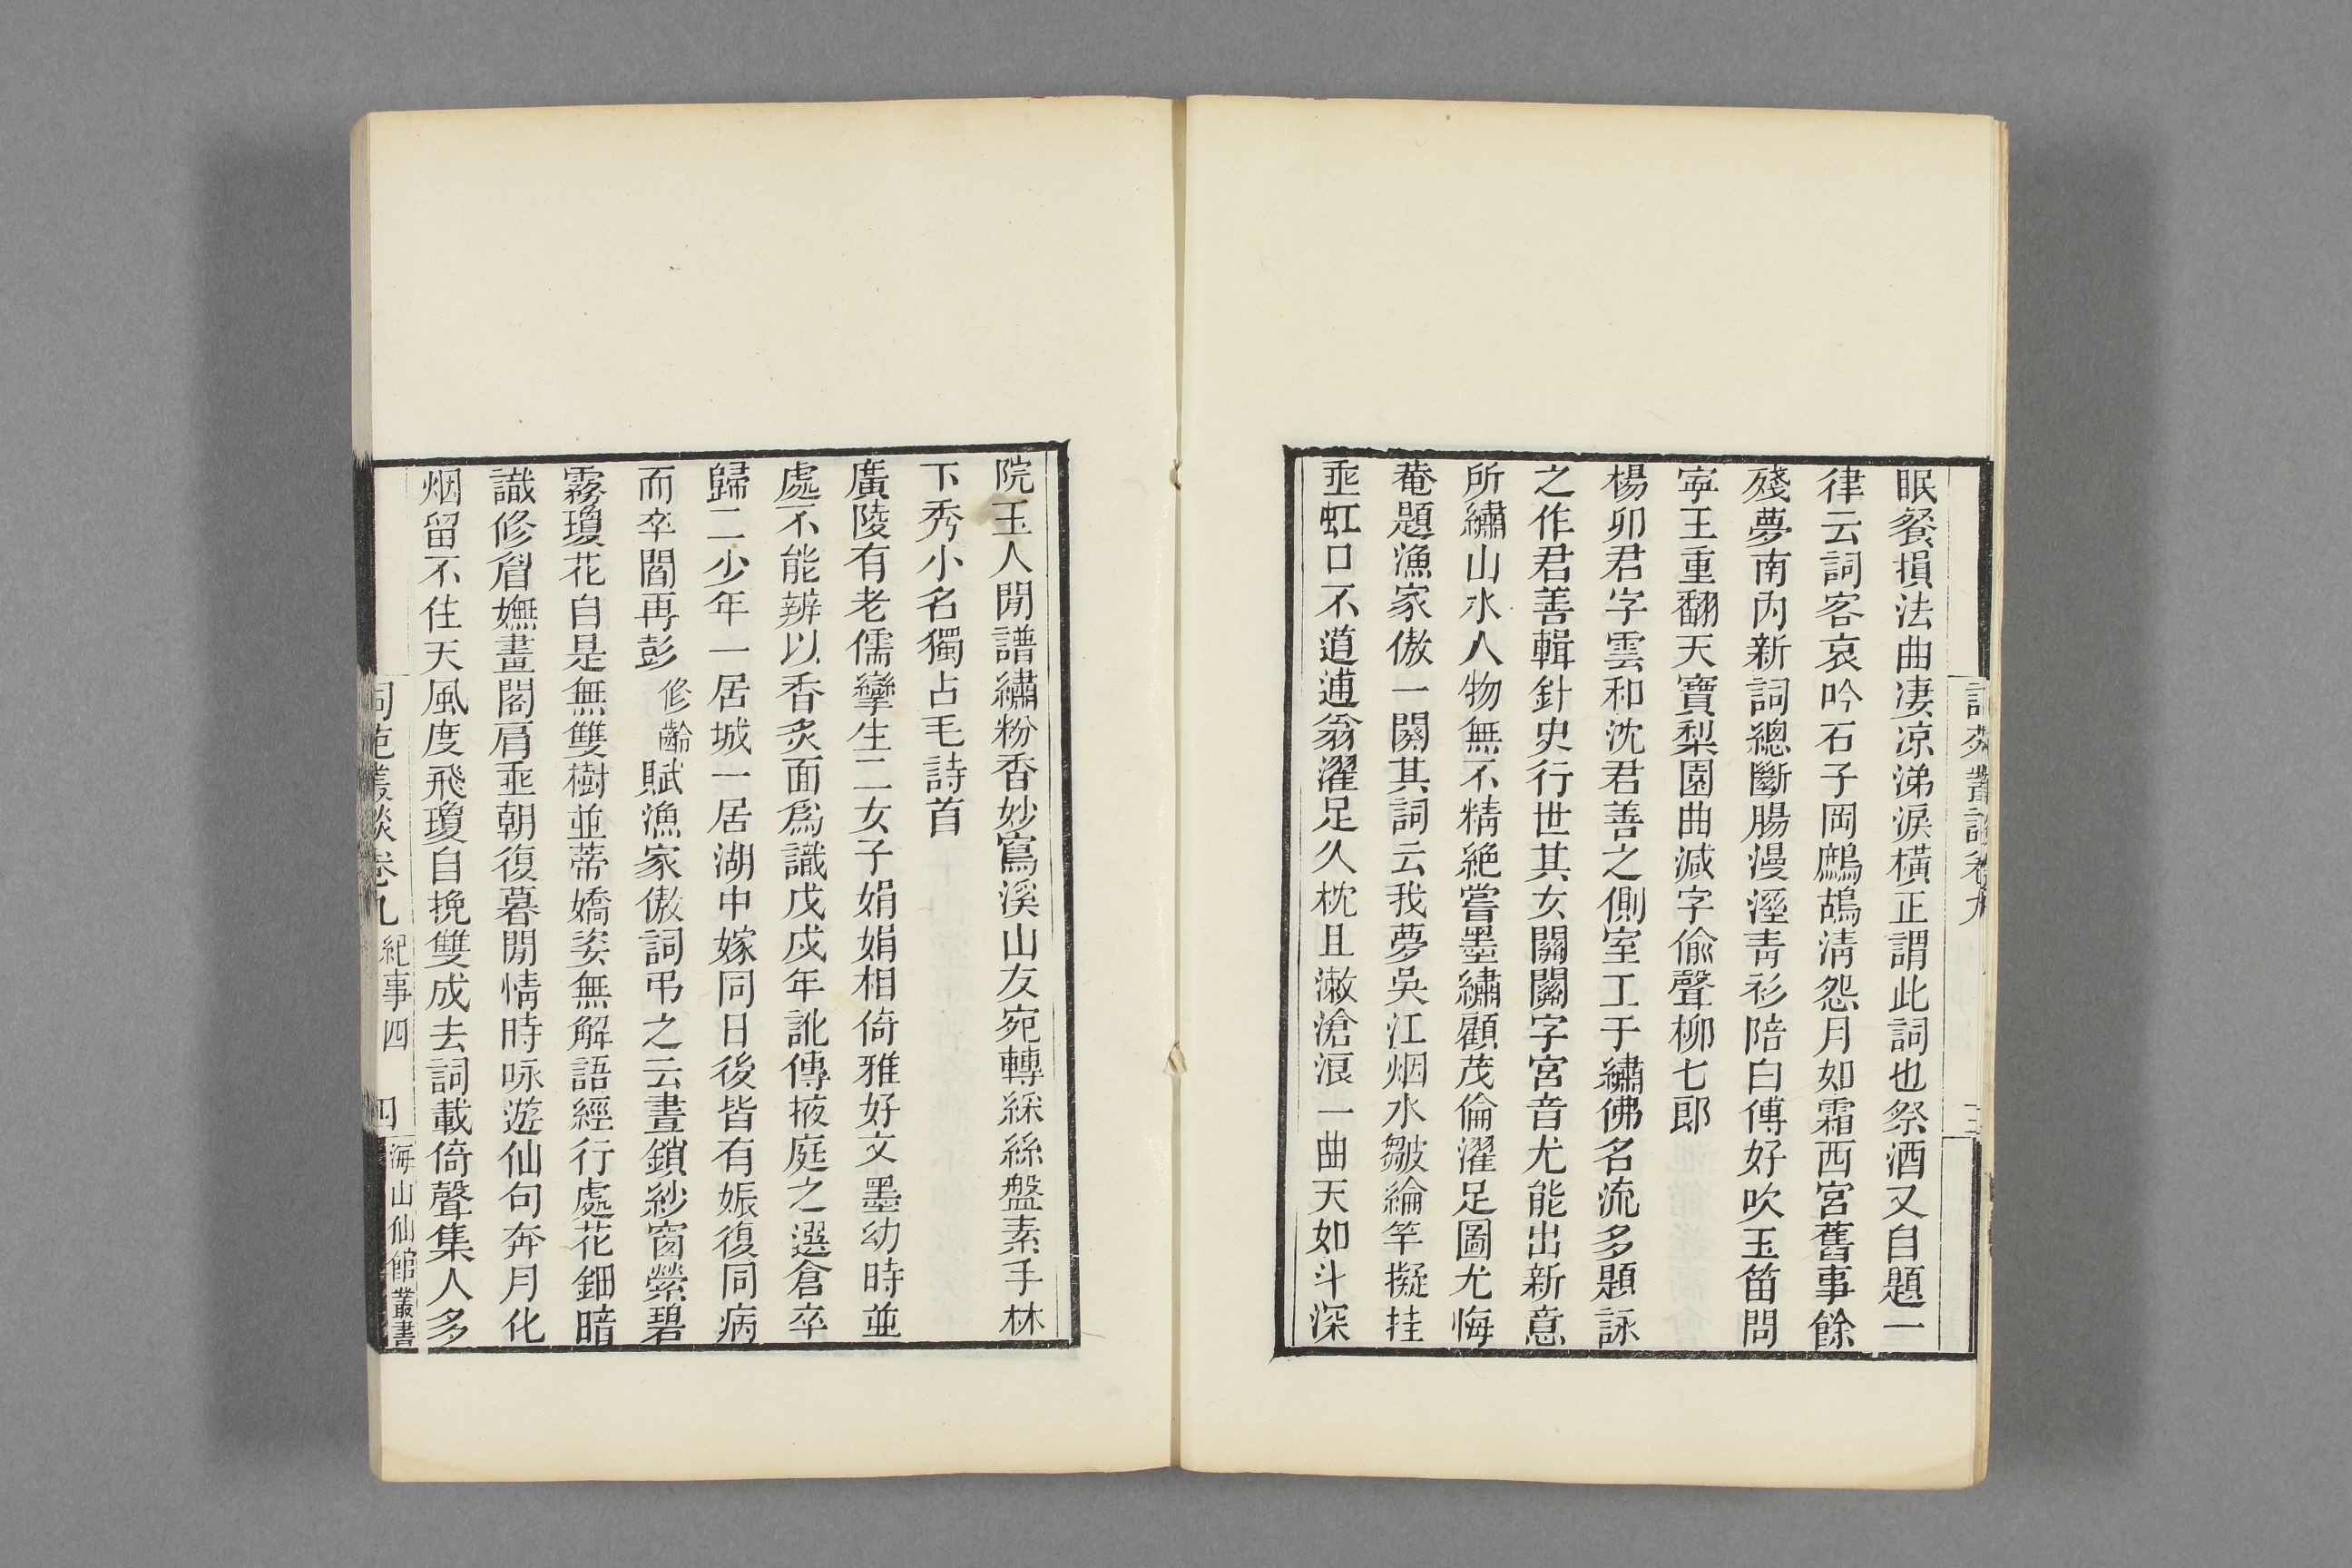 詞苑叢談卷九
三
眠餐損法曲凄凉涕淚橫正謂此詞也祭酒又自題一
律云詞客哀吟石子岡鷓鴣清怨月如霜西宮舊事餘
殘夢南內新詞總斷腸漫溼青衫陪白傅好吹玉笛問
寧王重翻天寶梨園曲減字偷聲柳七郎
楊卯君字雲和沈君善之側室工于繡佛名流多題詠
之作君善輯針史行世其女關關字宮音尤能出新意
所繡山水人物無不精絶嘗墨繡顧茂倫濯足圖尤悔
菴題漁家傲一闋其詞云我夢吳江烟水皺綸竿擬挂
垂虹口不道逋翁濯足久枕且漱滄浪一曲天如斗深
院玉人閒譜繡粉香妙寫溪山友宛轉綵絲盤素手林
下秀小名獨占毛詩首
廣陵有老儒孿生二女子娟娟相倚雅好文墨幼時並
處不能辨以香炙面爲識戊戌年訛傳掖庭之選倉卒
歸二少年一居城一居湖中嫁同日後皆有娠復同病
而卒閻再彭修齡賦漁家傲詞弔之云晝鎖紗窗縈碧
霧瓊花自是無雙樹並蒂嬌姿無解語經行處花鈿暗
識修眉嫵畫閣肩垂朝復暮閒情時咏遊仙句奔月化
烟留不住天風度飛瓊自挽雙成去詞載倚聲集人多
詞苑叢談卷九 紀事四 四 海山仙館叢書